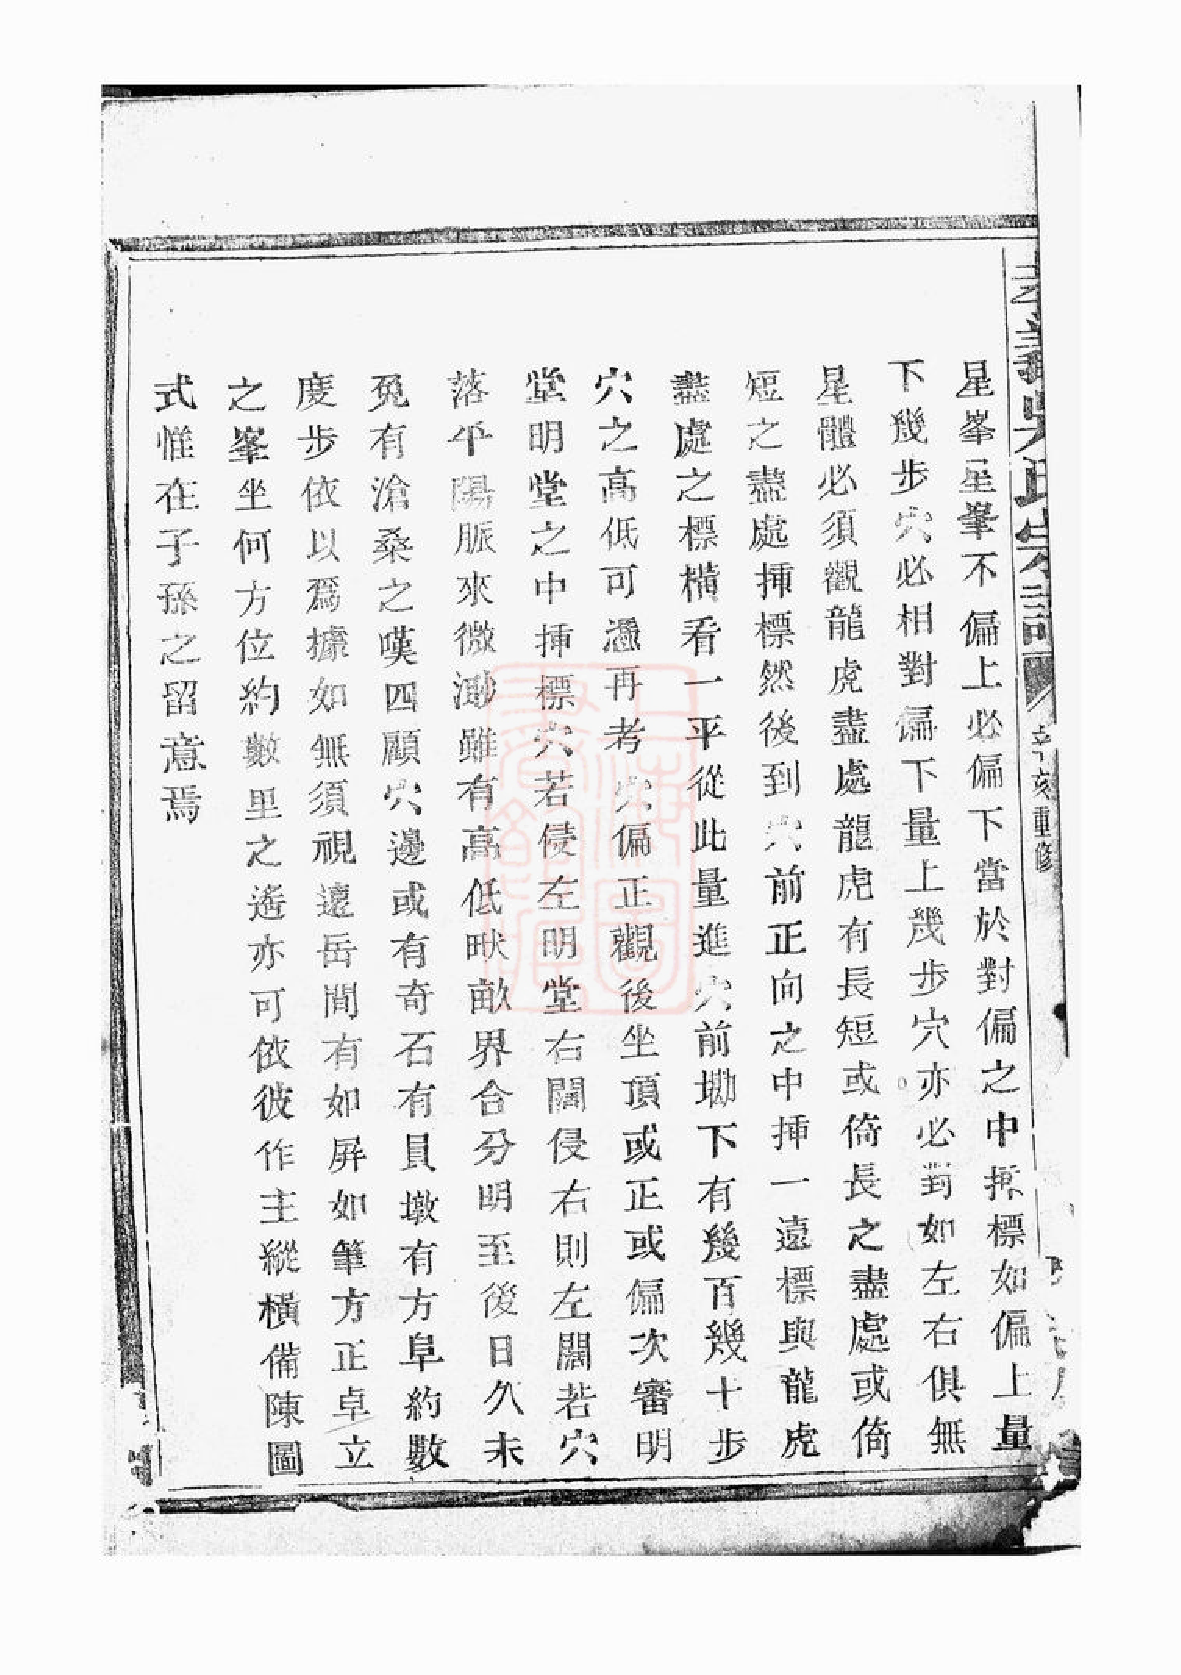 吳氏宗譜
重修
星峯星峯不偏上必偏下當於對偏之中㨂標如偏上量
下幾步穴必相對偏下量上幾步穴亦必對如左右俱無
星體必須觀龍虎盡處龍虎有長短或倚長之盡處或倚
短之盡處揷標然後到穴前正向之中揷一遠標與龍虎
盡處之標橫看一平從此量進穴前坳下有幾百幾十步
穴之高低可憑再考穴偏正觀後坐頂或正或偏次審明
堂明堂之中揷標穴若侵左明堂右闊侵右則左闊若穴
落平陽脈來微渺雖有高低畎畝界合分明至後日久未
免有滄桑之嘆四顧穴邊或有奇石有員墩有方阜約數
度步依以爲據如無須視遠岳間有如屏如筆方正卓立
之峯坐何方位約數里之遙亦可依彼作主縱橫備陳圖
式惟在子孫之留意焉